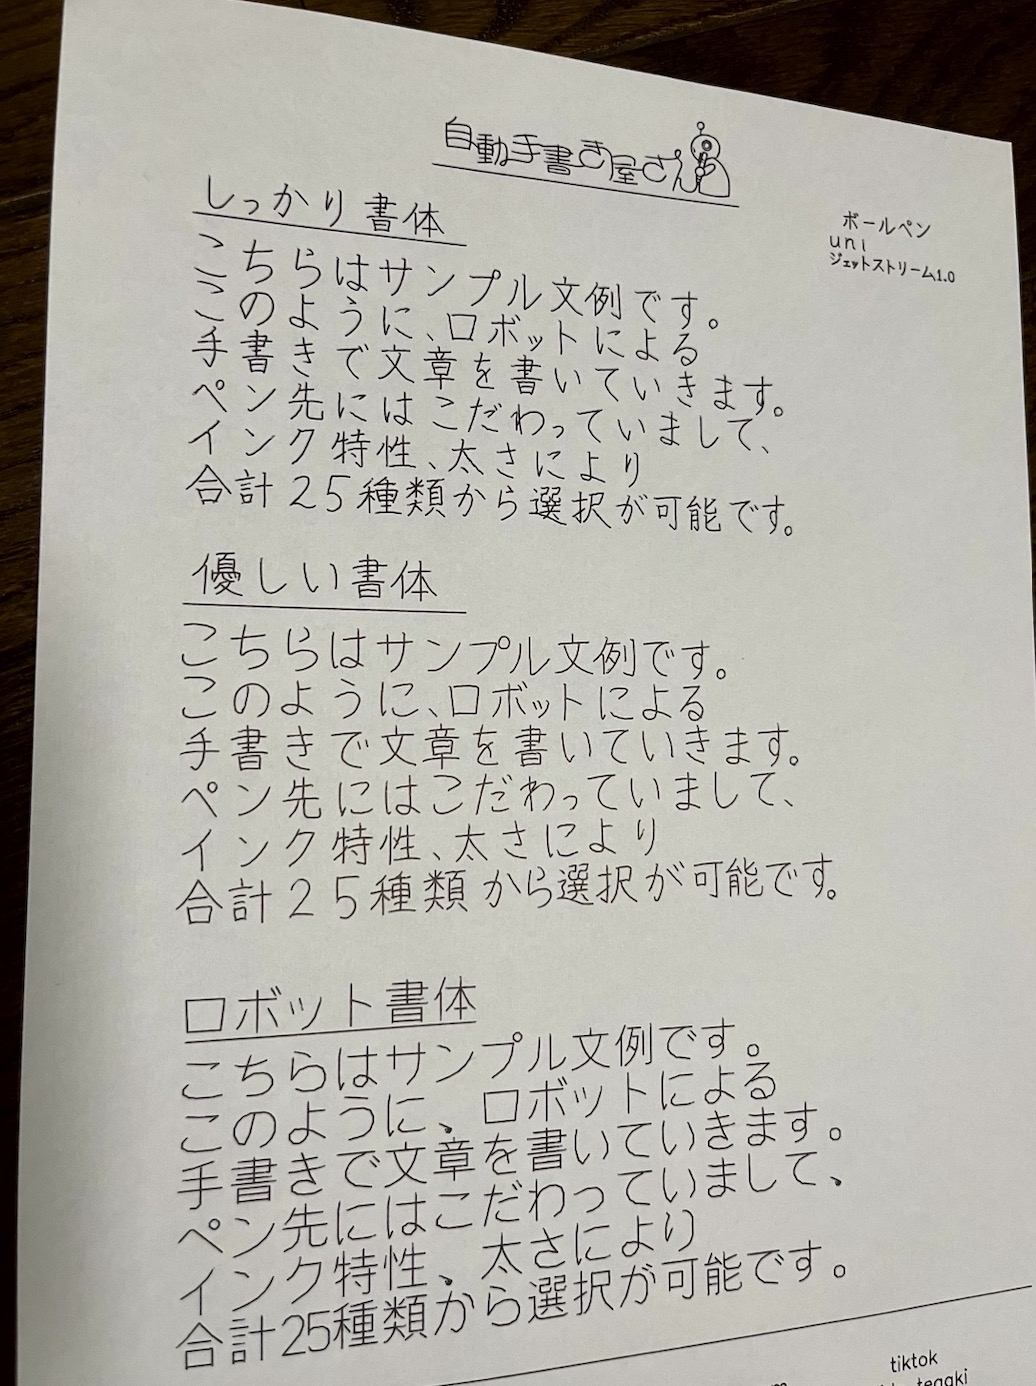 自動手書き屋さん
ボールペン
uni
ジェットストリーム1.0
しっかり書体
こちらはサンプル文例です。
このように、ロボットによる
手書きで文章を書いていきます。
ペン先にはこだわっていまして、
インク特性、太さにより
合計25種類から選択が可能です。
優しい書体
こちらはサンプル文例です。
このように、ロボットによる
手書きで文章を書いていきます。
ペン先にはこだわっていまして、
インク特性、太さにより
合計25種類から選択が可能です。
ロボット書体
こちらはサンプル文例です。
このように、ロボットによる
手書きで文章を書いていきます。
ペン先にはこだわっていまして、
インク特性、太さにより
合計25種類から選択が可能です。
tiktok